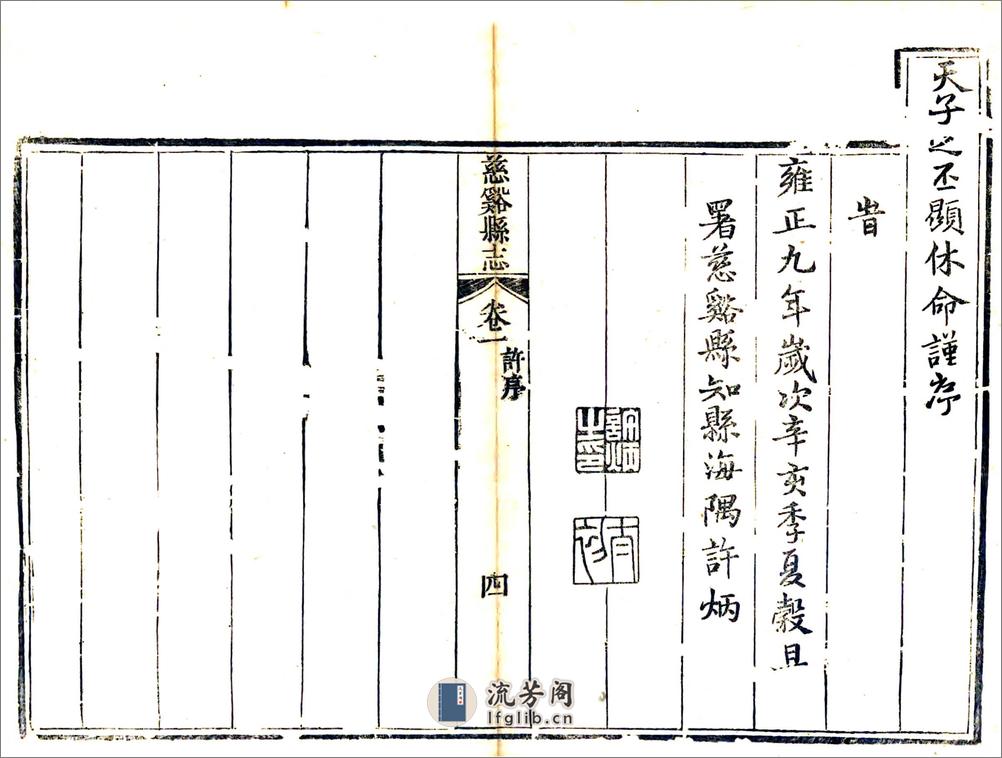 天子之丕顯休命謹序
旹
雍正九年歲次辛亥季夏穀旦
署慈谿縣知縣海隅許炳
許炳之印
慈谿縣志 卷一 許序 四
流芳阁
lfglib.cn